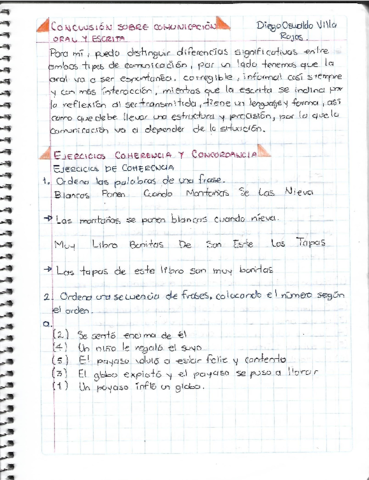 CONCLUSIÓN SOBRE COMUNICACIÓN
ORAL Y ESCRITA
Diego Oswaldo Villa
Rojas.
Para mi, puedo distinguir diferencias significativas entre
ambos tipos de comunicación, por un lado tenemos que la
oral va a ser espontánea, corregible, informal casi siempre
y con más interacción, mientas que la escrita se inclina por
la reflexión al ser transmitida, tiene un lenguaje y forma, así
como que debe llevar una estructura y precisión, por lo que la
comunicación va a depender de la situación.
EJERCICIOS COHERENCIA Y CONCORDANCIA
EJERCICIOS DE COHERENCIA
1. Ordena las palabras de una frase.
Blancas Ponen Cuando Montañas Se Las Nieva
→ Las montañas se ponen blancas cuando nieva.
Muy Libro Bonitas De Son Este Las Tapas
→ Las tapas de este libro son muy bonitas
2. Ordena una secuencia de frases, colocando el número según
el orden.
a.
(2) Se sentó encima de él
(4) Un niño le regaló el suyo
(5) El payaso volvió a estar feliz y contento
(3) El globo explotó y el payaso se puso a llorar
(1) Un payaso infló un globo.